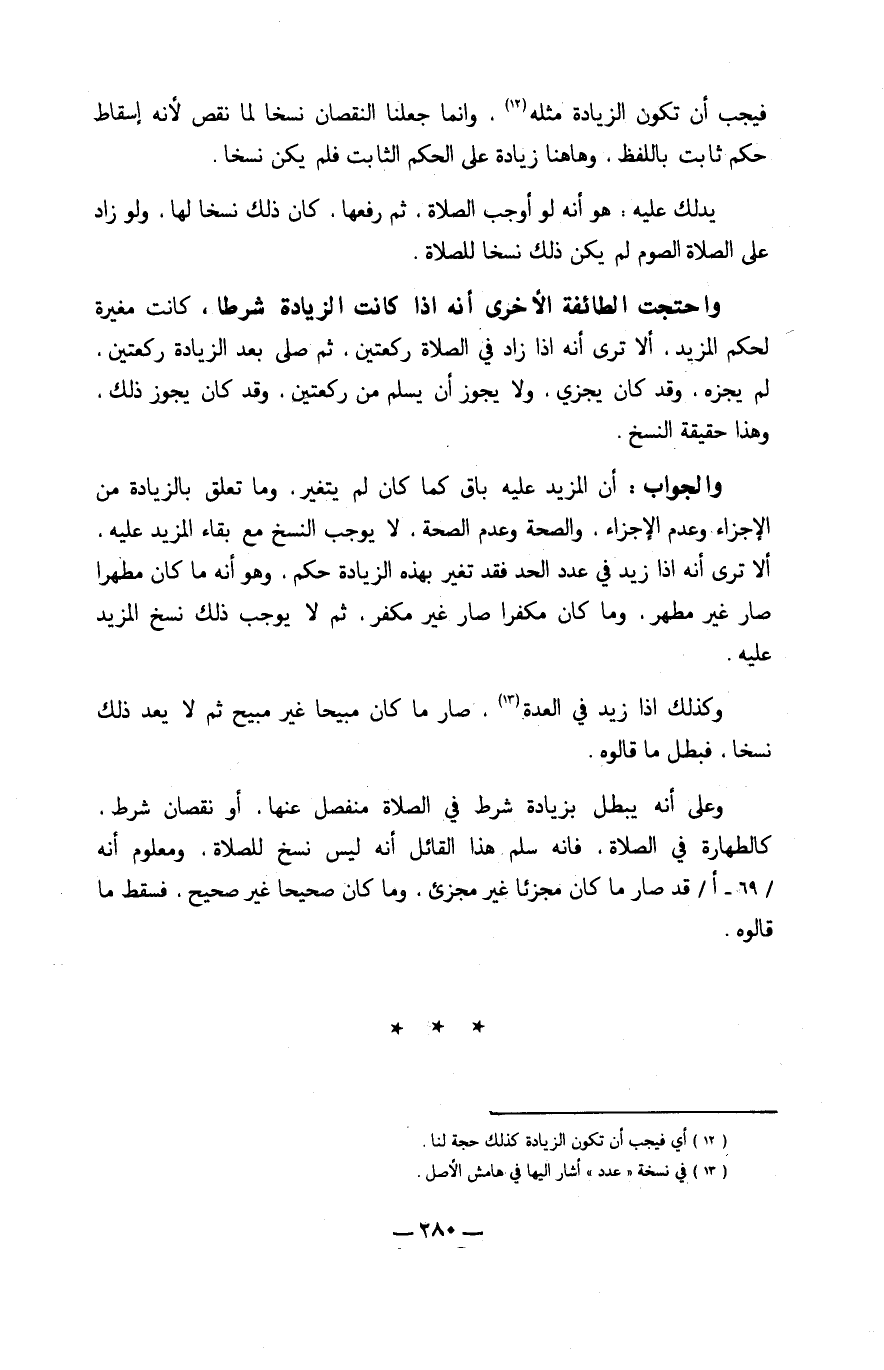 فيجب أن تكون الزيادة مثله(١٢) ، وانما جعلنا النقصان نسخا لما نقص لأنه إسقاط
حكم ثابت باللفظ ، وهاهنا زيادة على الحكم الثابت فلم يكن نسخا .
يدلك عليه : هو أنه لو أوجب الصلاة ، ثم رفعها ، كان ذلك نسخا لها ، ولو زاد
على الصلاة الصوم لم يكن ذلك نسخا للصلاة .
واحتجت الطائفة الأخرى أنه اذا كانت الزيادة شرطا ، كانت مغيرة
لحكم المزيد ، ألا ترى أنه اذا زاد في الصلاة ركعتين ، ثم صلى بعد الزيادة ركعتين ،
لم يجزه ، وقد كان يجزي ، ولا يجوز أن يسلم من ركعتين ، وقد كان يجوز ذلك ،
وهذا حقيقة النسخ .
والجواب : أن المزيد عليه باق كما كان لم يتغير ، وما تعلق بالزيادة من
الإجزاء وعدم الإجزاء ، والصحة وعدم الصحة ، لا يوجب النسخ مع بقاء المزيد عليه ،
ألا ترى أنه اذا زيد في عدد الحد فقد تغير بهذه الزيادة حكم ، وهو أنه ما كان مطهرا
صار غير مطهر ، وما كان مكفرا صار غير مكفر ، ثم لا يوجب ذلك نسخ المزيد
عليه .
وكذلك اذا زيد في العدة(١٣) ، صار ما كان مبيحا غير مبيح ثم لا يعد ذلك
نسخا ، فبطل ما قالوه .
وعلى أنه يبطل بزيادة شرط في الصلاة منفصل عنها ، أو نقصان شرط ،
كالطهارة في الصلاة ، فانه سلم هذا القائل أنه ليس نسخ للصلاة ، ومعلوم أنه
/ ٦٩ ـ أ / قد صار ما كان مجزئا غير مجزئ ، وما كان صحيحا غير صحيح ، فسقط ما
قالوه .
* * *
( ١٢ ) أي فيجب أن تكون الزيادة كذلك حجة لنا .
( ١٣ ) في نسخة « عدد » أشار اليها في هامش الأصل .
— ٢٨٠ —